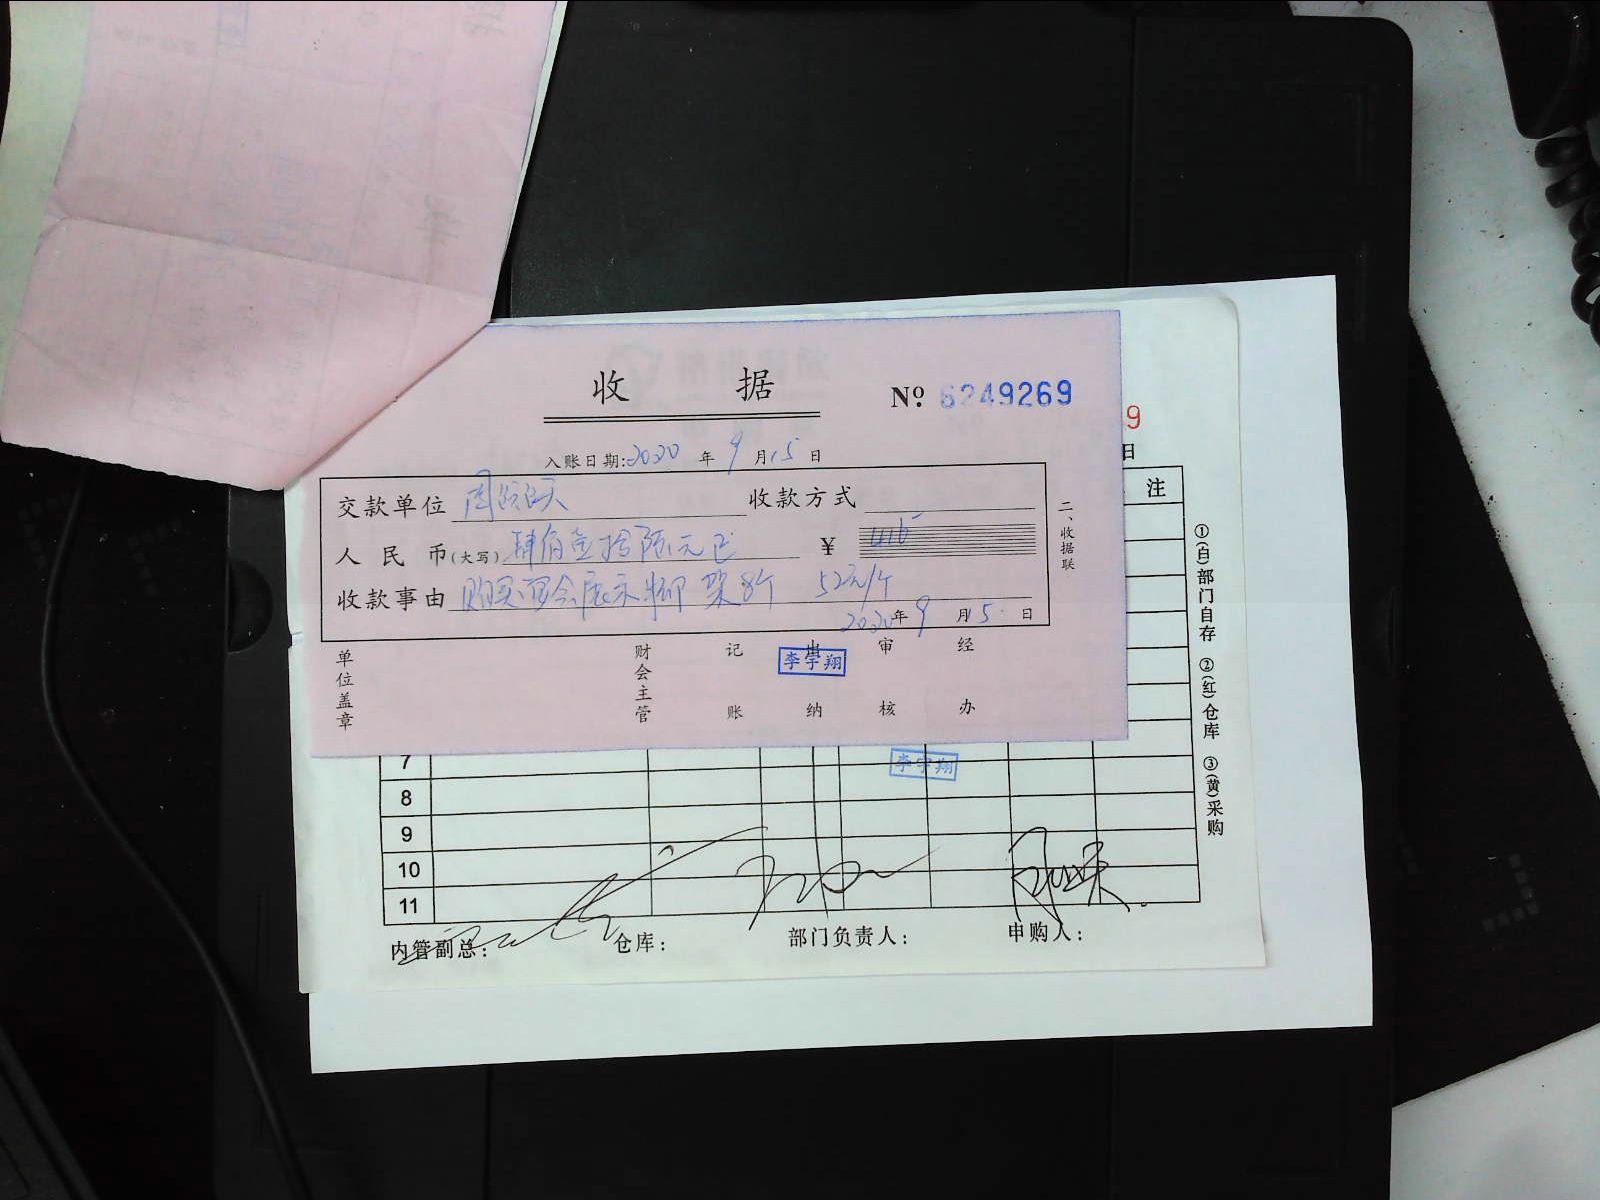 收 据
№ 6249269
9
入账日期:2020 年 9 月 15 日
日
交款单位 收款方式
注
人民币(大写) 肆佰壹拾陆元正 ¥ 416
收款事由 购买 会展示 架8个 52元/个
2020年 9 月15 日
二、收据联
单位盖章 财会主管 记账 出纳 审核 经办
李宇翔
①(白)部门自存 ②(红)仓库 ③(黄)采购
7
李宇翔
8
9
10
11
内管副总: 仓库: 部门负责人: 申购人: